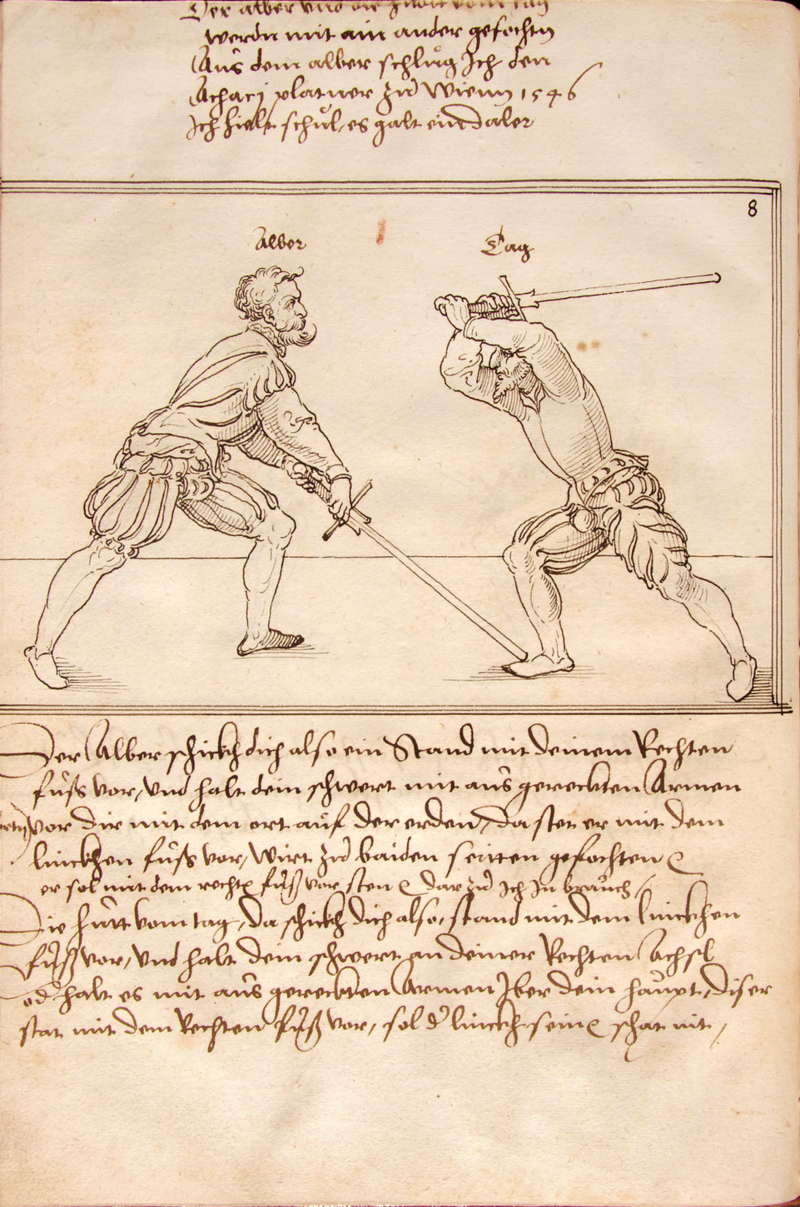 Der alber vnd die huott vom tag
werdn mit ain ander gefochtn
Aus dem alber schlug Ich den
Achacj platner zu Wienn 1546
Ich hielt schul, es galt ein Daler
8
Alber
Tag
Der Alber schickh dich also ein Stand mit deinem Rechten
fuss vor, vnd halt dein schwert mit aus gereckten Armen
vor dir mit dem ort auf der erden, da stet er mit dem
linckhen fuss vor, Wirt zu baiden seitten gefochten
er sol mit dem recht fuß vor sten dar zu Ich In brauch
Die hutt vom tag, da schickh dich also, stand mit dem linckhen
fuß vor, vnd halt dein schwert an deiner Rechten Achsl
od halt es mit aus gereckten Armen Jber dein haupt, diser
stat mit dem Rechten fuß vor, sol d linckh sein schat nit,